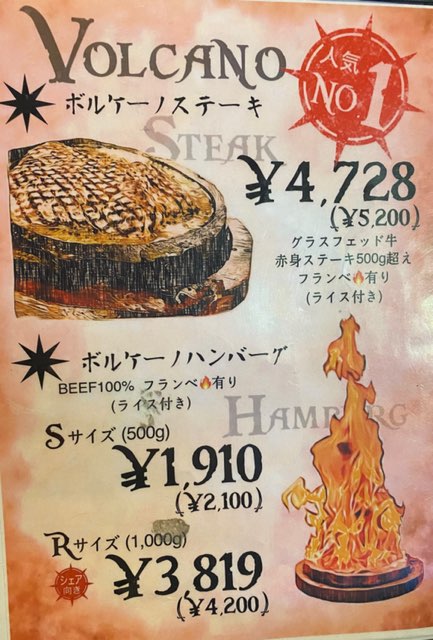 VOLCANO
ボルケーノステーキ
人気
NO1
STEAK
¥4,728
(¥5,200)
グラスフェッド牛
赤身ステーキ500g超え
フランベ🔥有り
(ライス付き)
ボルケーノハンバーグ
BEEF100% フランベ🔥有り
(ライス付き)
HAMBURG
Sサイズ (500g)
¥1,910
(¥2,100)
Rサイズ (1,000g)
シェア
向き
¥3,819
(¥4,200)